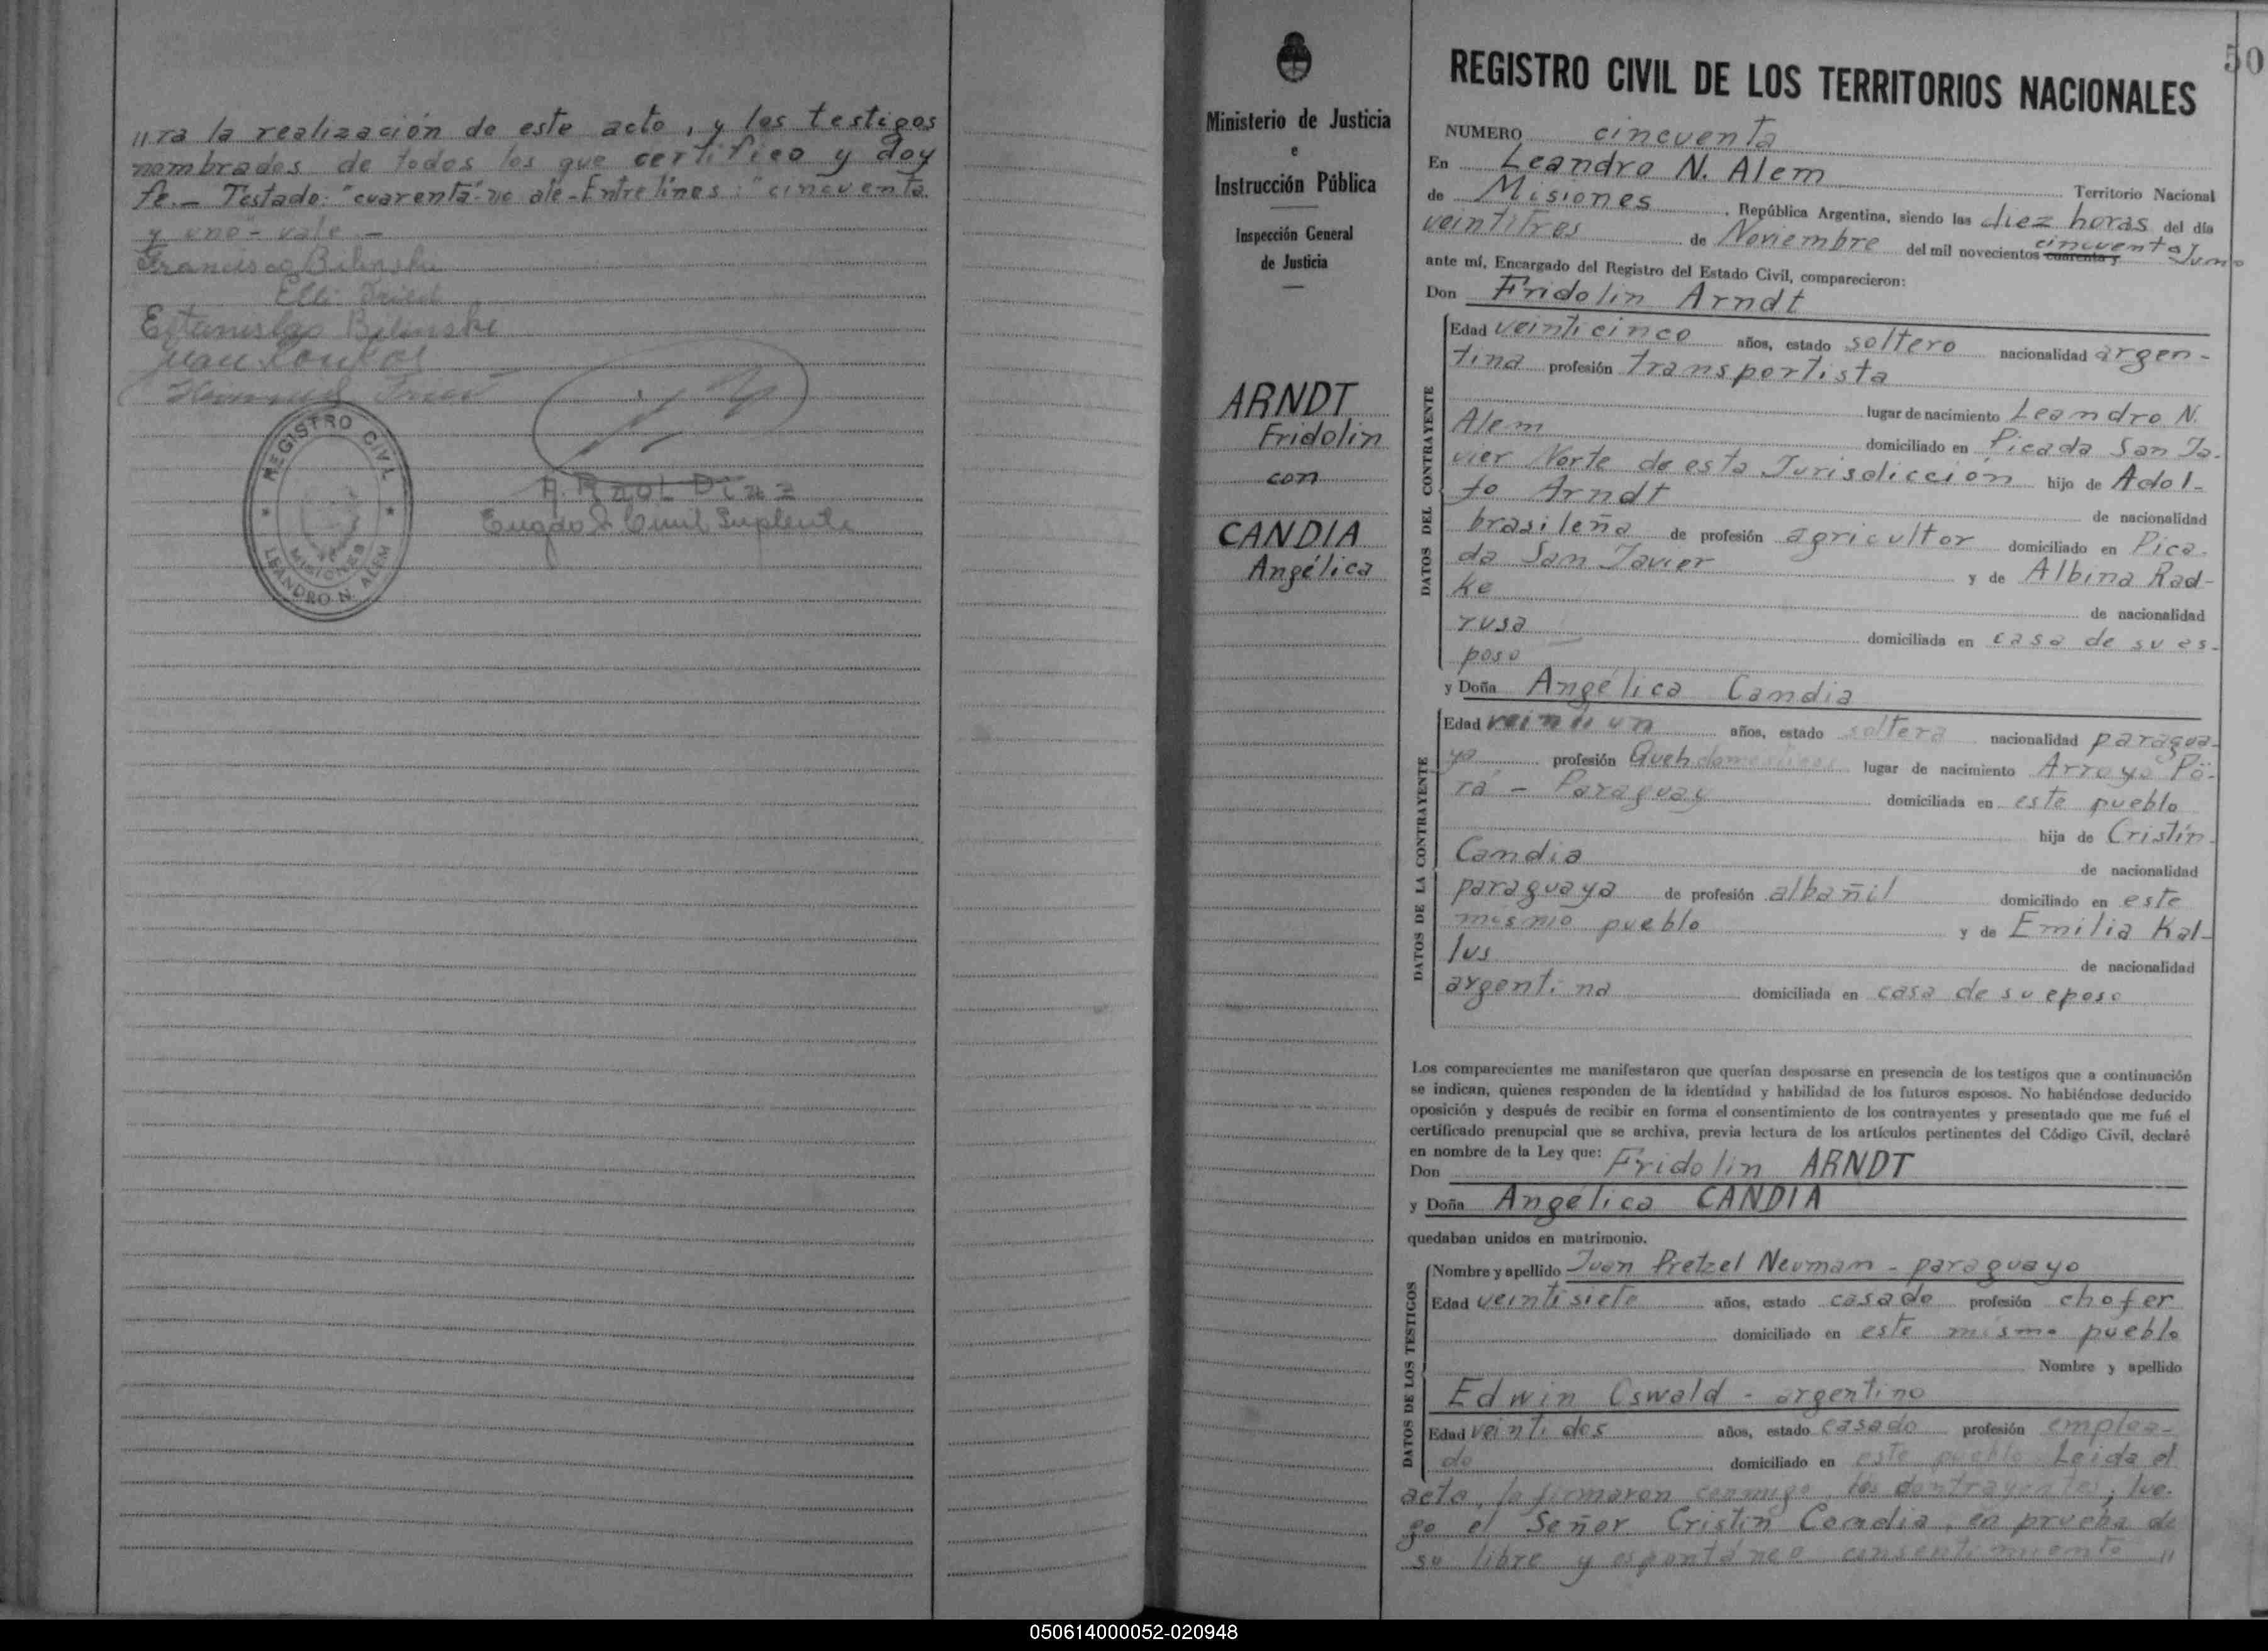 //ra la realización de este acto, y los testigos
nombrados de todos los que certifico y doy
fe.- Testado: "cuarenta"- no vale - Entre lines: "cincuenta
y uno"- vale -
Francisco Bilinski
Elli Fried
Estanislao Bilinski
Juan
Fried
REGISTRO CIVIL
MISIONES
LEANDRO N. ALEM
A. Raol Diaz
Engdo R. Civil Suplente
Ministerio de Justicia
e
Instrucción Pública
Inspección General
de Justicia
ARNDT
Fridolin
con
CANDIA
Angélica
50
REGISTRO CIVIL DE LOS TERRITORIOS NACIONALES
NUMERO cincuenta
En Leandro N. Alem Territorio Nacional
de Misiones, República Argentina, siendo las diez horas del día
veintitres de Noviembre del mil novecientos cuarenta y cincuenta y uno
ante mí, Encargado del Registro del Estado Civil, comparecieron:
Don Fridolin Arndt
DATOS DEL CONTRAYENTE
Edad veinticinco años, estado soltero nacionalidad argen-
tina profesión transportista
lugar de nacimiento Leandro N.
Alem domiciliado en Picada San Ja-
vier Norte de esta Jurisdicción hijo de Adol-
fo Arndt de nacionalidad
brasileña de profesión agricultor domiciliado en Pica-
da San Javier y de Albina Rad-
ke de nacionalidad
rusa domiciliada en casa de su es-
poso
y Doña Angélica Candia
DATOS DE LA CONTRAYENTE
Edad veintiun años, estado soltera nacionalidad paragua-
ya profesión Queh domesticos lugar de nacimiento Arroyo Po-
rá - Paraguay domiciliada en este pueblo
hija de Cristín
Candia de nacionalidad
paraguaya de profesión albañil domiciliado en este
mismo pueblo y de Emilia Kal-
lus de nacionalidad
argentina domiciliada en casa de su eposo
Los comparecientes me manifestaron que querían desposarse en presencia de los testigos que a continuación
se indican, quienes responden de la identidad y habilidad de los futuros esposos. No habiéndose deducido
oposición y después de recibir en forma el consentimiento de los contrayentes y presentado que me fué el
certificado prenupcial que se archiva, previa lectura de los artículos pertinentes del Código Civil, declaré
en nombre de la Ley que:
Don Fridolin ARNDT
y Doña Angélica CANDIA
quedaban unidos en matrimonio.
DATOS DE LOS TESTIGOS
Nombre y apellido Juan Pretzel Neumam - paraguayo
Edad veintisiete años, estado casado profesión chofer
domiciliado en este mismo pueblo
Nombre y apellido
Edwin Oswald - argentino
Edad veintidos años, estado casado profesión emplea-
do domiciliado en este pueblo Leida el
acto, la firmaron conmigo, los contrayentes; lue-
go el Señor Cristín Candia, en prueba de
su libre y espontáneo consentimiento //
050614000052-020948